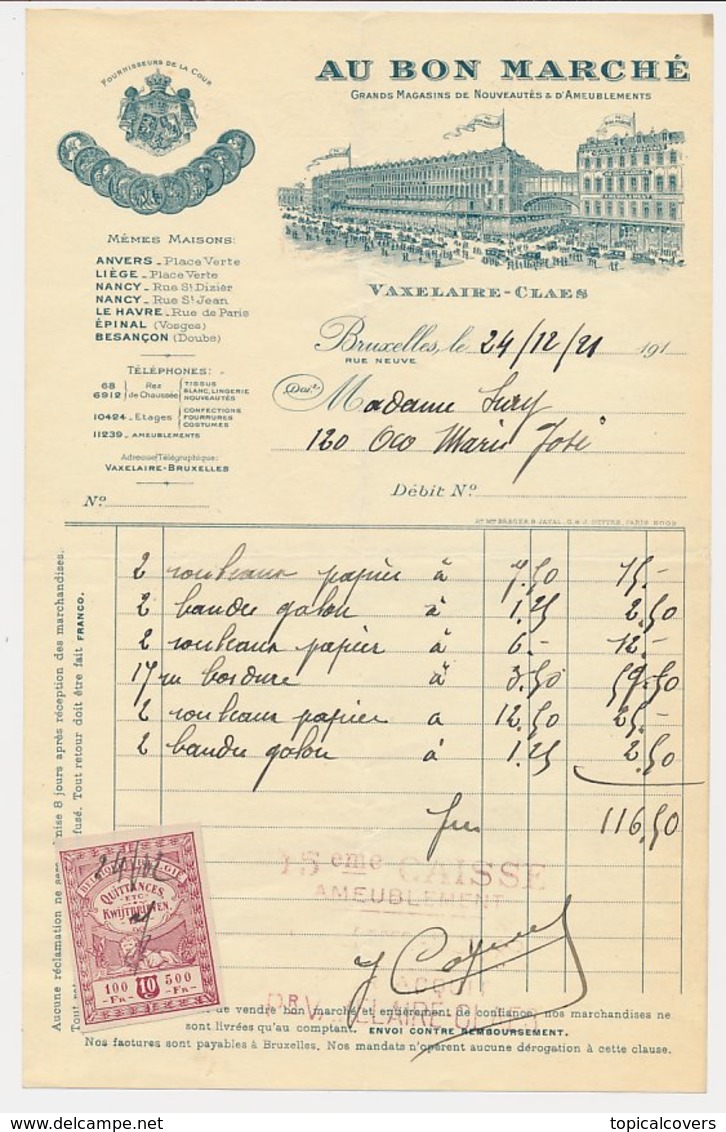 FOURNISSEURS DE LA COUR
AU BON MARCHÉ
GRANDS MAGASINS DE NOUVEAUTÉS & D'AMEUBLEMENTS
MÊMES MAISONS:
ANVERS - Place Verte
LIÈGE - Place Verte
NANCY - Rue St Dizier
NANCY - Rue St Jean
LE HAVRE - Rue de Paris
ÉPINAL (Vosges)
BESANÇON (Doubs)
TÉLÉPHONES:
68
6912
Rez
de Chaussée
TISSUS
BLANC, LINGERIE
NOUVEAUTÉS
10424 - Etages
CONFECTIONS
FOURRURES
COSTUMES
11239 - AMEUBLEMENTS
Adresse Télégraphique:
VAXELAIRE-BRUXELLES
No
VAXELAIRE-CLAES
Bruxelles, le 24/12/21 191
RUE NEUVE
Doit
Madame
120 Marie José
Débit No
2 rouleaux papier à 7.50 15.-
2 bandes galon à 1.25 2.50
2 rouleaux papier à 6.- 12.-
17 m bordure à 3.50 59.50
2 rouleaux papier a 12.50 25.-
2 bandes galon à 1.25 2.50
frs 116.50
15eme CAISSE
AMEUBLEMENT
QUITTANCES
ETC
KWIJTBRIEVEN
100 10 500
FR FR
Aucune réclamation ne sera admise 8 jours après réception des marchandises.
Tout refusé. Tout retour doit être fait FRANCO.
de vendre bon marché et entièrement de confiance, nos marchandises ne
sont livrées qu'au comptant. ENVOI CONTRE REMBOURSEMENT.
Nos factures sont payables à Bruxelles. Nos mandats n'opèrent aucune dérogation à cette clause.
delcampe.net
topicalcovers